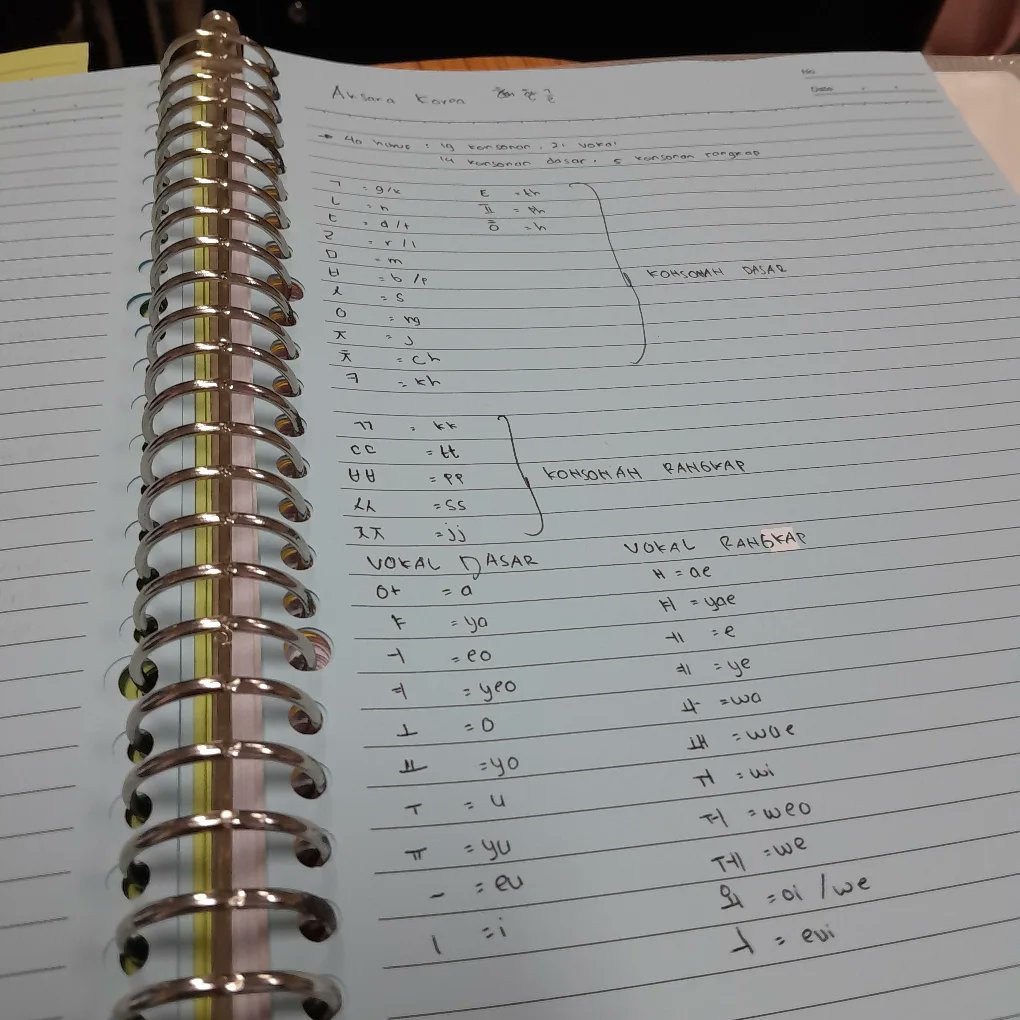 Aksara Korea
No.
Date
→ 40 huruf : 19 konsonan, 21 vokal
14 konsonan dasar, 5 konsonan rangkap
ㄱ = g/k
ㄴ = n
ㄷ = d/t
ㄹ = r/l
ㅁ = m
ㅂ = b/p
ㅅ = s
ㅇ = ng
ㅈ = j
ㅊ = ch
ㅋ = kh
ㅌ = th
ㅍ = ph
ㅎ = h
KONSONAN DASAR
ㄲ = kk
ㄸ = tt
ㅃ = pp
ㅆ = ss
ㅉ = jj
KONSONAN RANGKAP
VOKAL DASAR
아 = a
ㅑ = ya
ㅓ = eo
ㅕ = yeo
ㅗ = o
ㅛ = yo
ㅜ = u
ㅠ = yu
ㅡ = eu
ㅣ = i
VOKAL RANGKAP
ㅐ = ae
ㅒ = yae
ㅔ = e
ㅖ = ye
ㅘ = wa
ㅙ = wae
ㅟ = wi
ㅝ = weo
ㅞ = we
외 = oi /we
ㅢ = eui